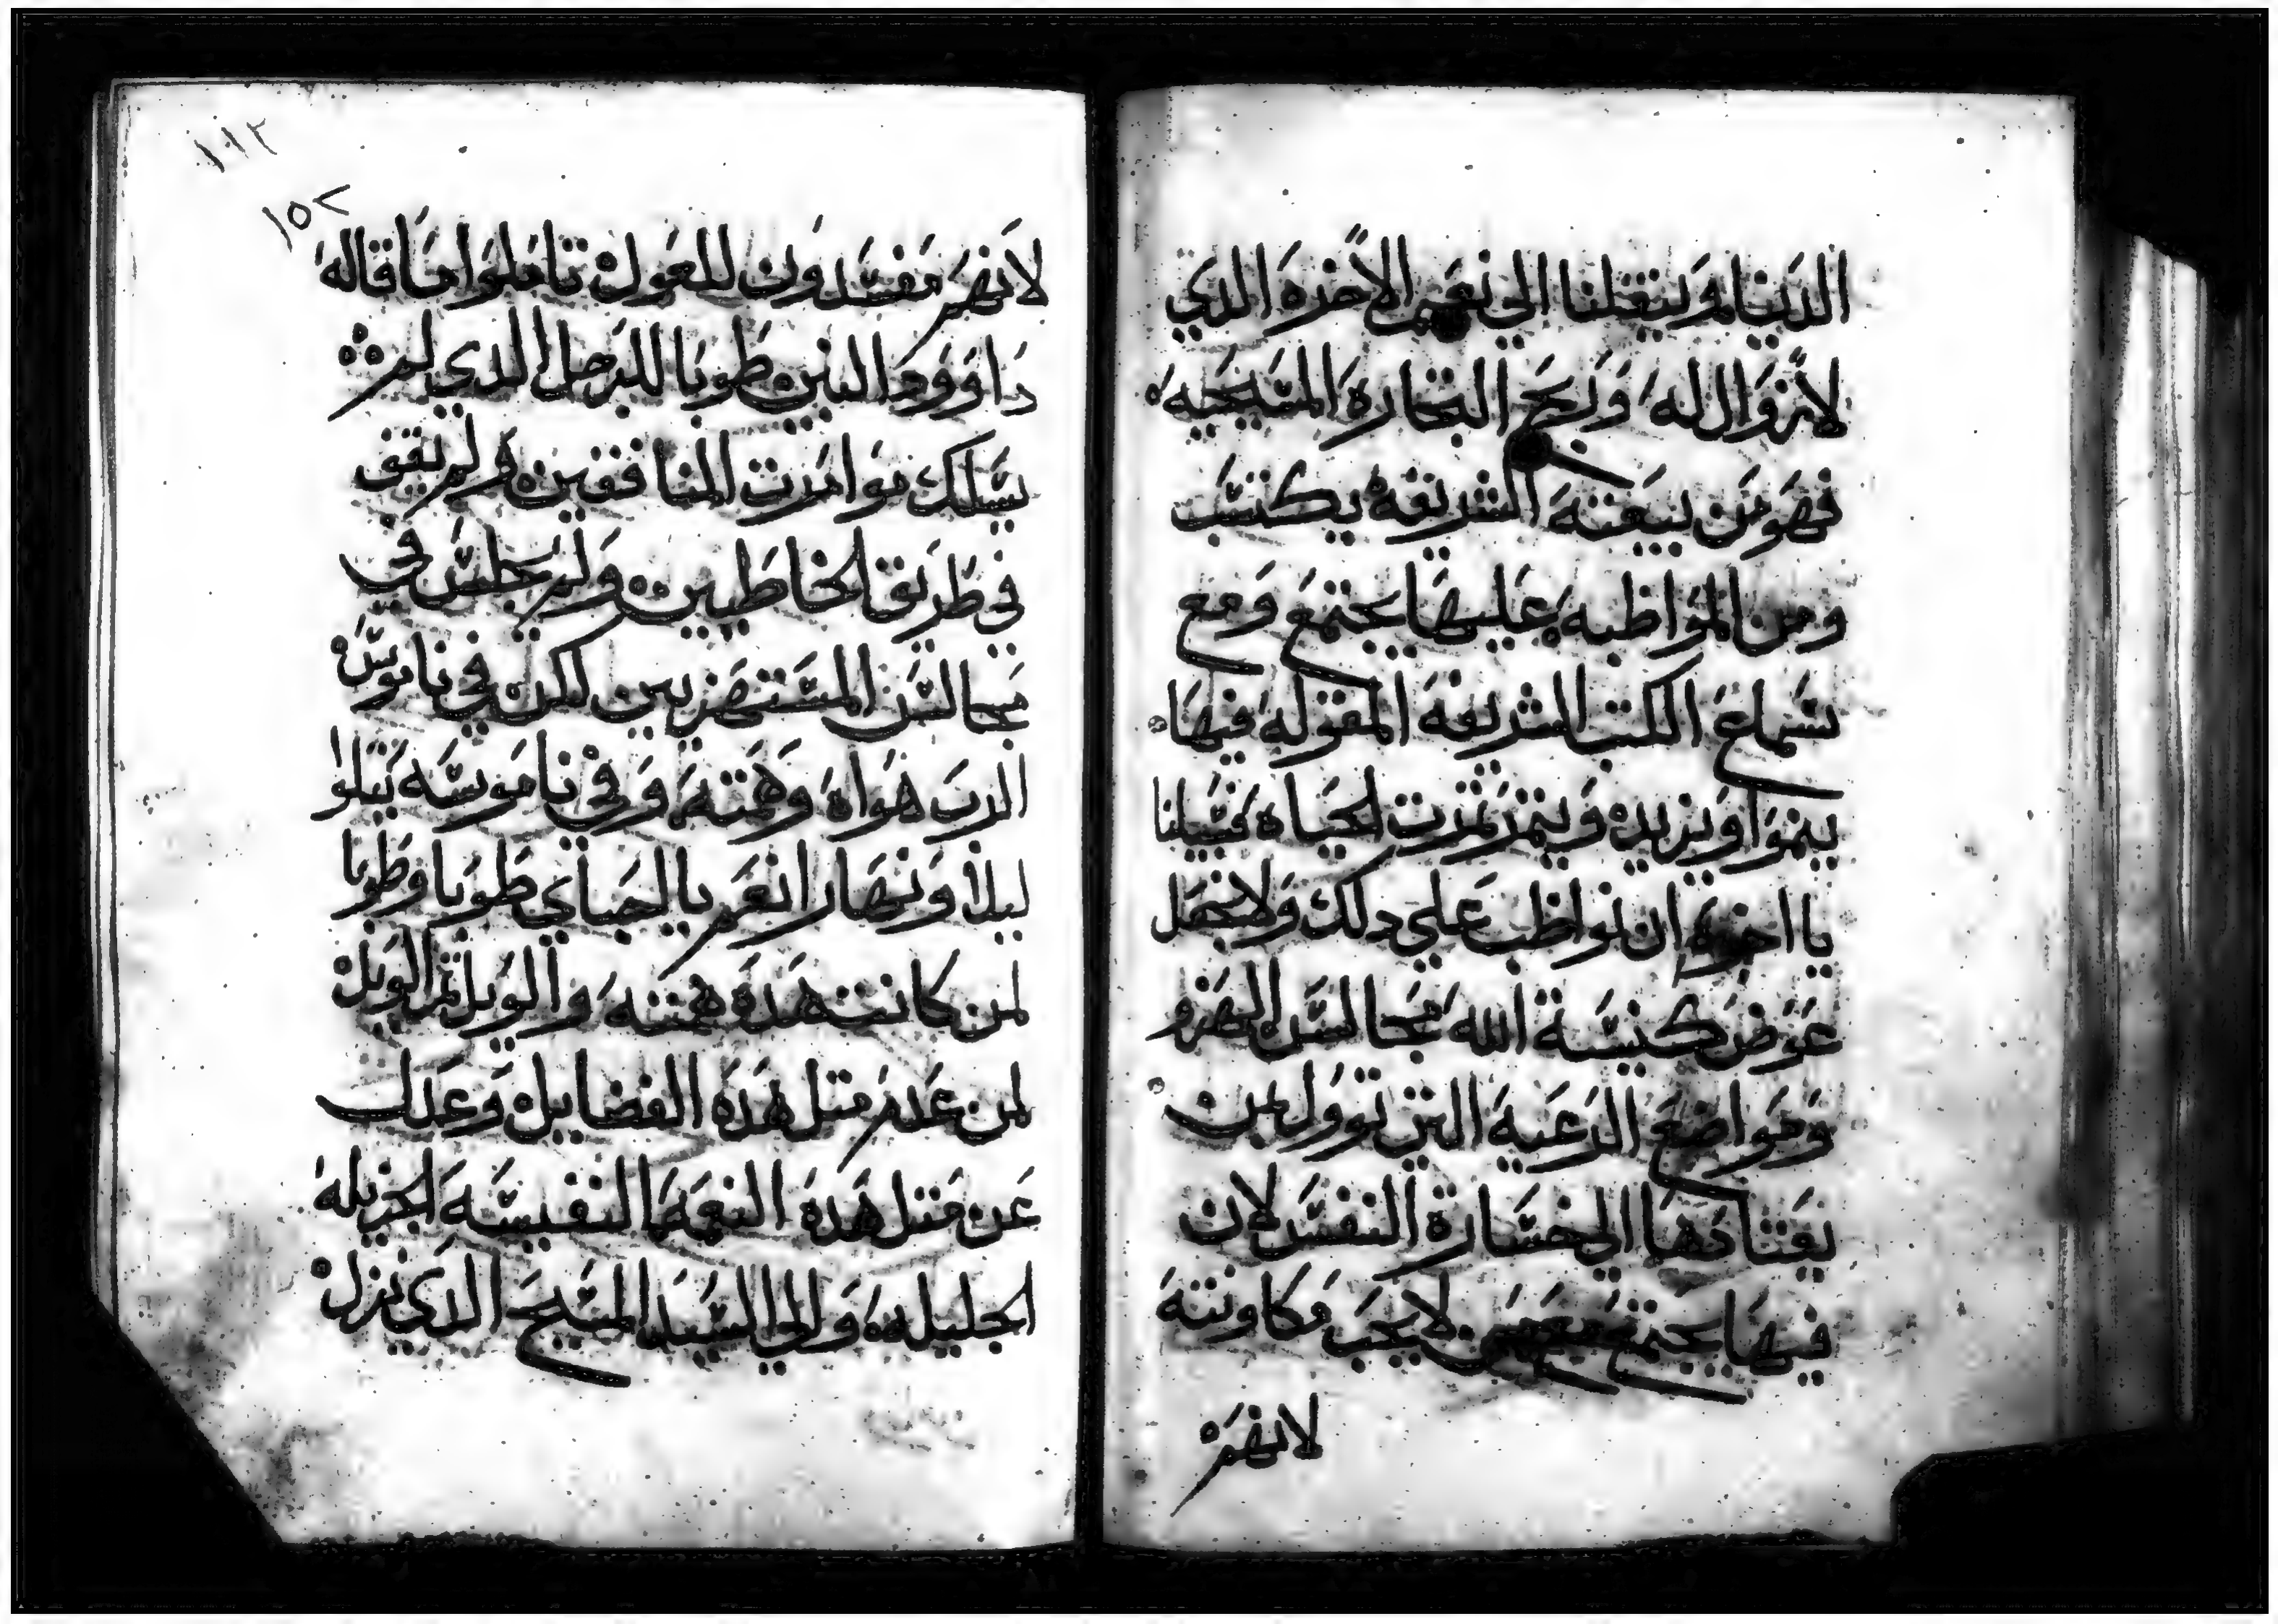 الدينا وينقلنا الي نعيم الاخرة الدي
لا زوال له وربح التجارة المسيحيه
فهو من بيعته الشريفه يكتسب
ومن المواظبه عليها يجتمع ومع
سماع الكتب الشريفه المقوله فيها
ينموا ويزيد ويثمر ثمرت الحياه فسبيلنا
يا اخوة ان نواظب علي دلك ولا نجعل
عوض كنيسة الله مجالس الهزو
ومواضع الرعية التي توول بمن
يعتادها الي خسارة النفس لان
فيها يجتمع من لا يجب مكاونته
لانهم
١١٢
١٥٢
لانهم مفسدون للعقول تاملوا ما قاله
داوود النبي طوبا للرجل الدي لم
يسلك موامرت المنافقين ولم يقف
في طريق الخاطيين ولم يجلس في
مجالس المستهزيين لكن في ناموس
الرب هواه وهمته وفي ناموسه يتلوا
ليلا ونهارا نعم يا احباي طوبا وطوبا
لمن كانت هده همته والويل ثم الويل
لمن عدم متل هده الفضايل وعدل
عن متل هده النعمه النفيسه الجزيله
الجليله والي السيد المسيح الدي نزل